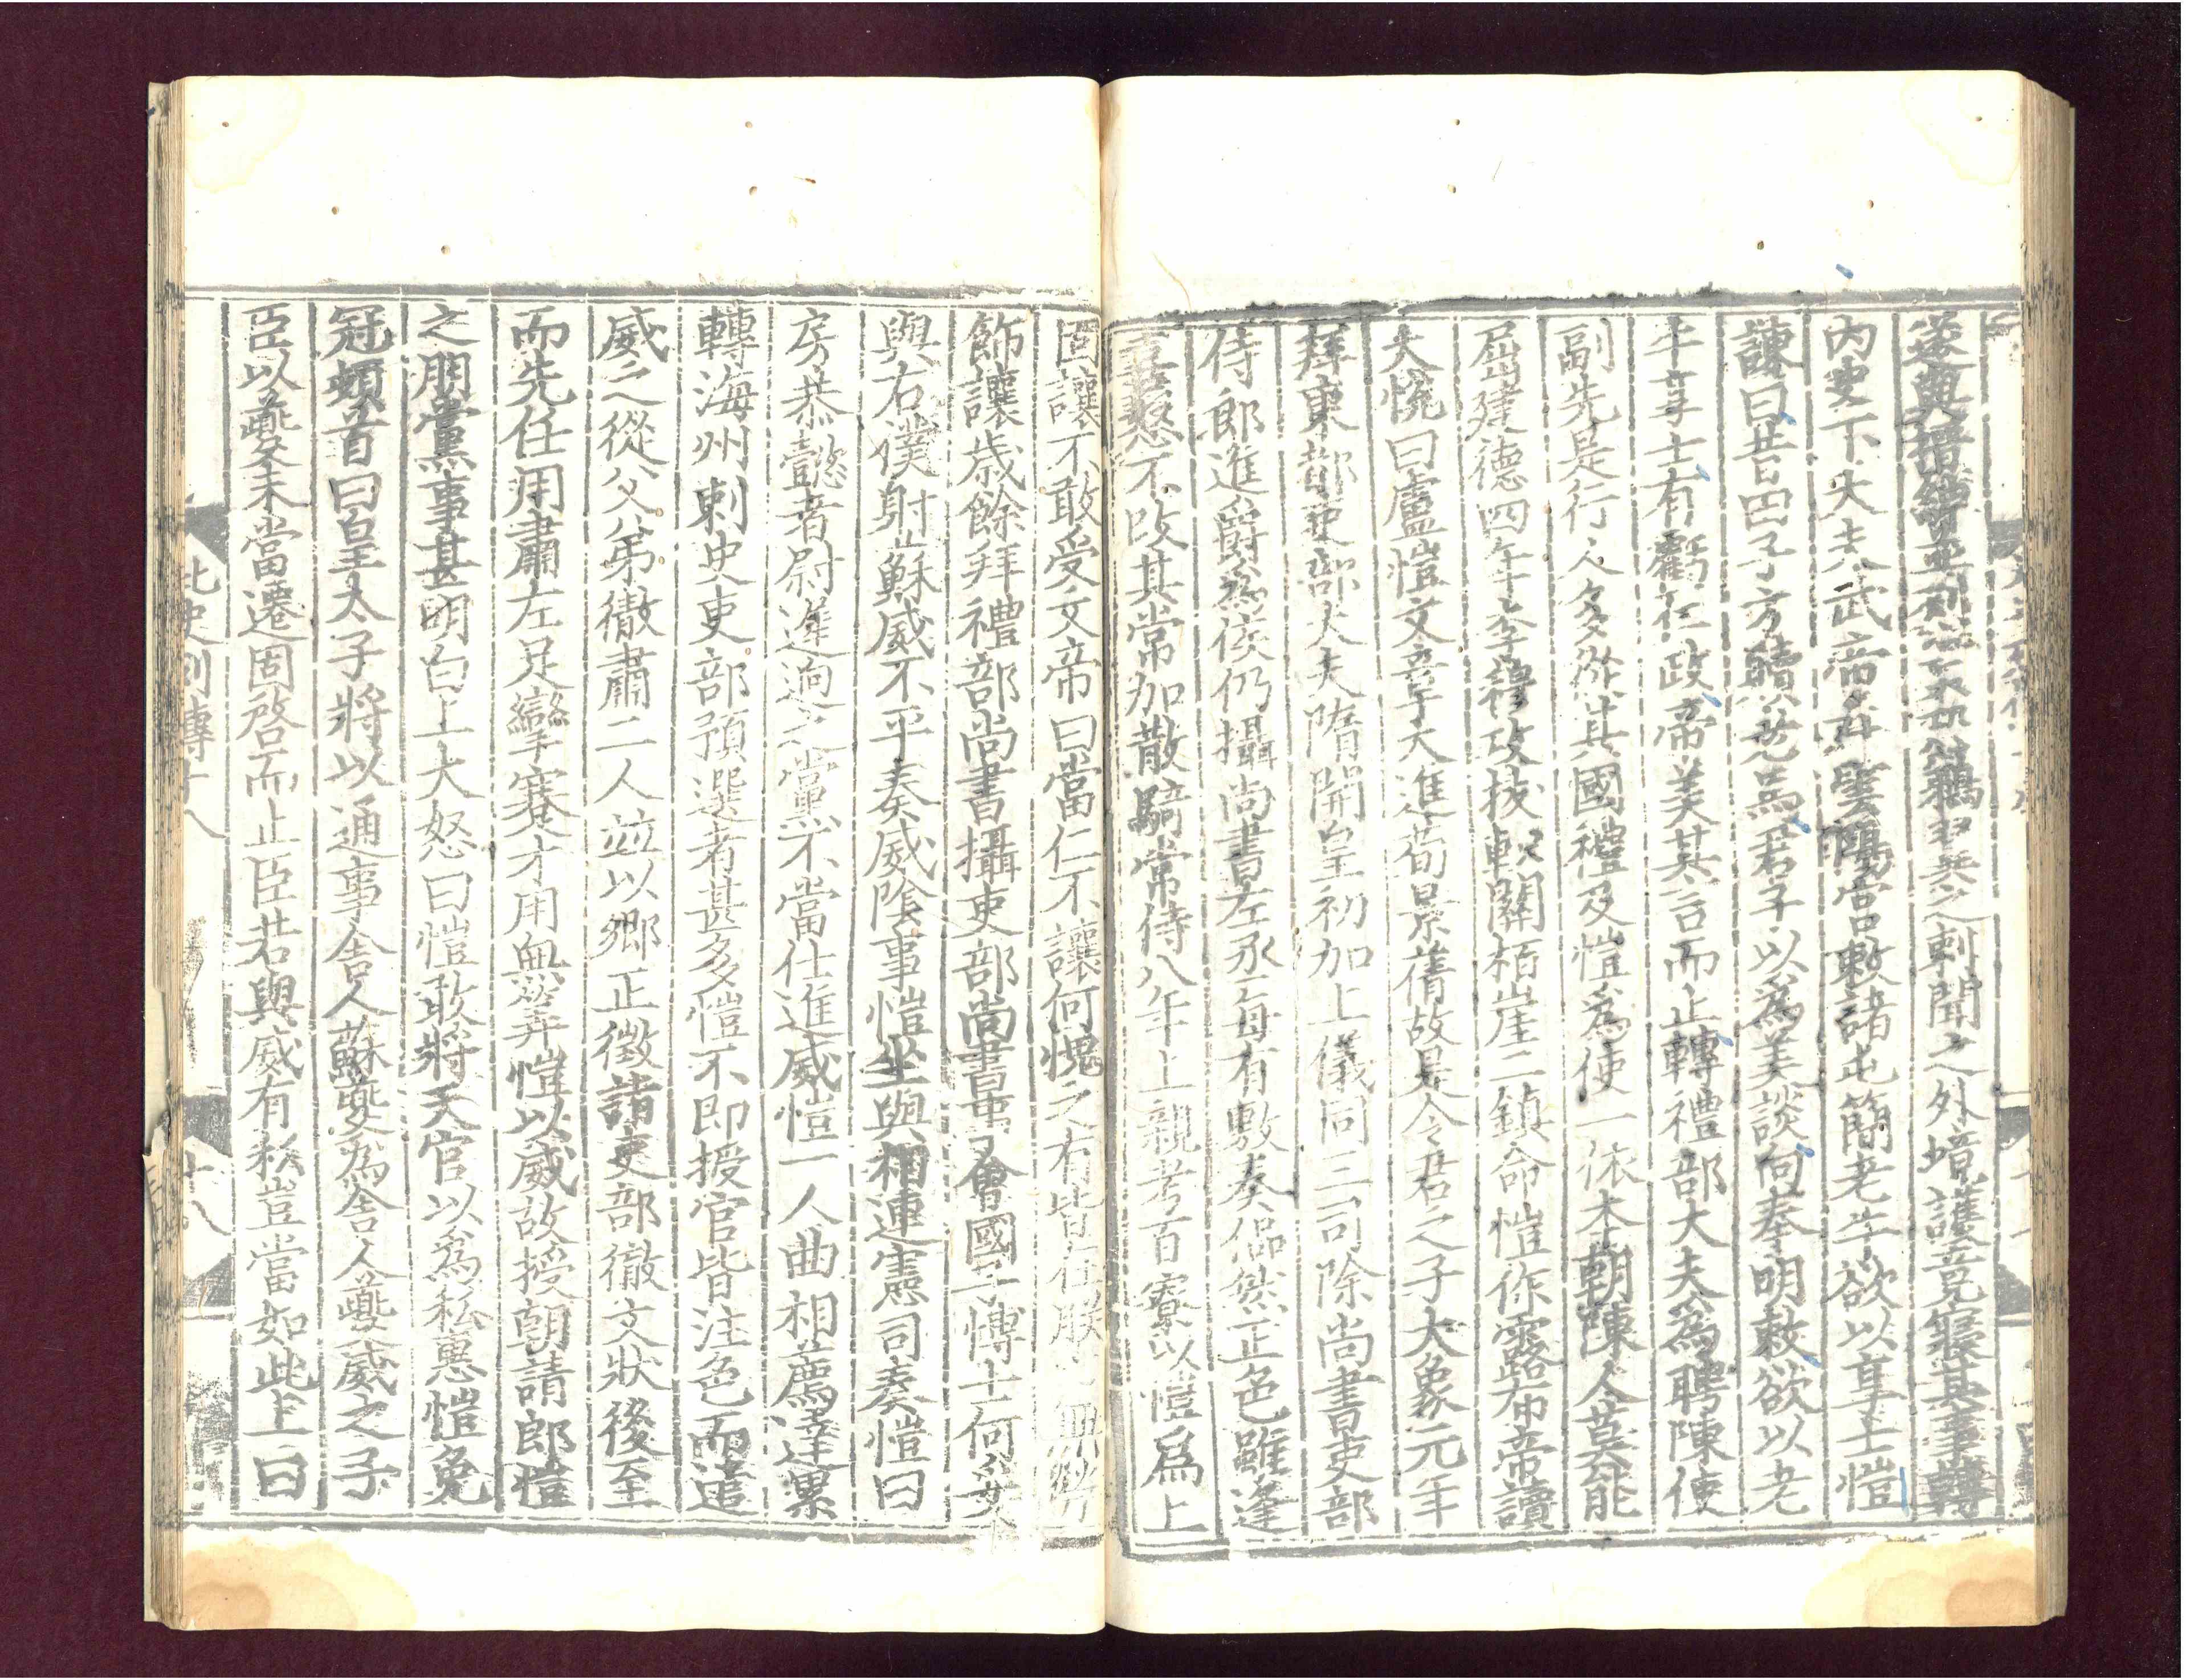 遂與搢紳並列 之刺聞之外境護竟寢其事轉
內史下大夫武帝在雲陽宮敕諸屯簡老牛欲以享士愷
諫曰昔田子方贖老馬君子以為美談向奉明敕欲以老
牛享士有虧仁政帝美其言而止轉禮部大夫為聘陳使
副先是行人多從其國禮及愷為使一依本朝陳人莫能
屈建德四年李穆攻拔軹關栢崖二鎮命愷作露布帝讀
大悅曰盧愷文章大進荀景蒨故是令君之子大象元年
拜東部吏部大夫隋開皇初加上儀同三司除尚書吏部
侍郎進爵為侯仍攝尚書左丞每有敷奏偘然正色雖逢
喜怒不改其常加散騎常侍八年上親考百寮以愷為上
固讓不敢受文帝曰當仁不讓何愧之有皆在朕
飾讓歲餘拜禮部尚書攝吏部尚書事會國子博士何妥
與右僕射蘇威不平奏威陰事愷坐與相連憲司奏愷曰
房恭懿者尉遲迥之黨不當仕進威愷二人曲相薦達累
轉海州刺史吏部預選者甚多愷不即授官皆注色而遣
威之從父弟徹肅二人並以鄉正徵詣吏部徹文狀後至
而先任用肅左足攣蹇才用無筭愷以威故授朝請郎愷
之朋黨事甚明白上大怒曰愷敢將天官以為私惠愷免
冠頓首曰皇太子將以通事舍人蘇夔為舍人夔威之子
臣以夔未當遷固啓而止臣若與威有私豈當如此上曰
北史列傳十八
十八